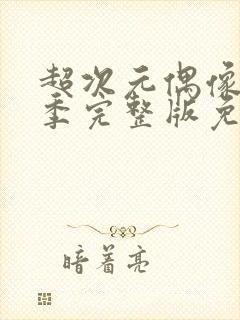 超次元偶像
季完整版免
暗着亮